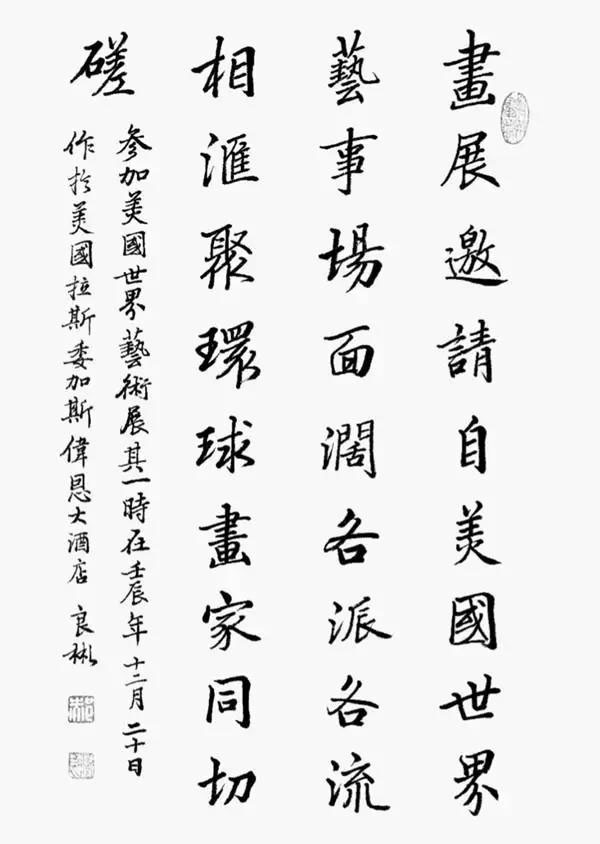 畫展邀請自美國世界
藝事場面濶各派各流
相滙聚環球畫家同切
磋
參加美國世界藝術展其一時在壬辰年十二月二十日
作於美國拉斯委加斯偉恩大酒店 良彬